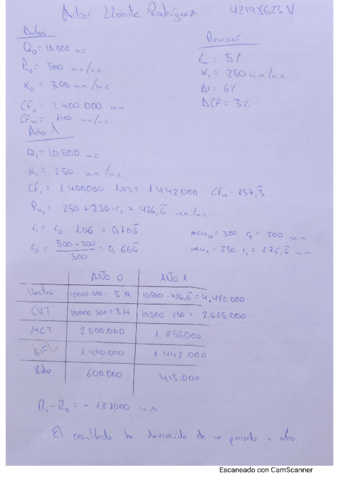 Aitor Ubonte Rodríguez 42195623V
Datos
Previsión
Q₀ = 10 000 u.c.
P₀ = 500 u.m/u.c
K₀ = 300 u.m/u.c
CF₀ = 1 400.000 u.m
CFu₀ = 140 u.m/u.c
ℓ₀ = 5%
K₁ = 250 u.m/u.c
Δr = 6%
ΔCF = 3%
Año 1
Q₁ = 10 500 u.c
K₁ = 250 u.m/u.c
CF₁ = 1 400000 · 1.03 = 1 442000 CFu = 137,3
Pv₁ = 250 + 250 · r₁ = 426,6 u.m/u.c
r₁ = r₀ · 1.06 = 0,706
r₀ = 500 - 300 / 300 = 0,666
mcu₀ = 300 · r₀ = 200 u.m
mcu₁ = 250 · r₁ = 176,6 u.m
AÑO 0 AÑO 1
Ventas 10000 · 500 = 5 M 10500 · 426,6 = 4,480.000
CVT 10000 · 300 = 3 M 10500 · 250 = 2.625.000
MCT 2.000.000 1.855.000
CF 1.400.000 1.442.000
Rdo 600.000 413.000
R₁ - R₀ = - 187000 u.m
El resultado ha decrecido de un periodo a otro
Escaneado con CamScanner